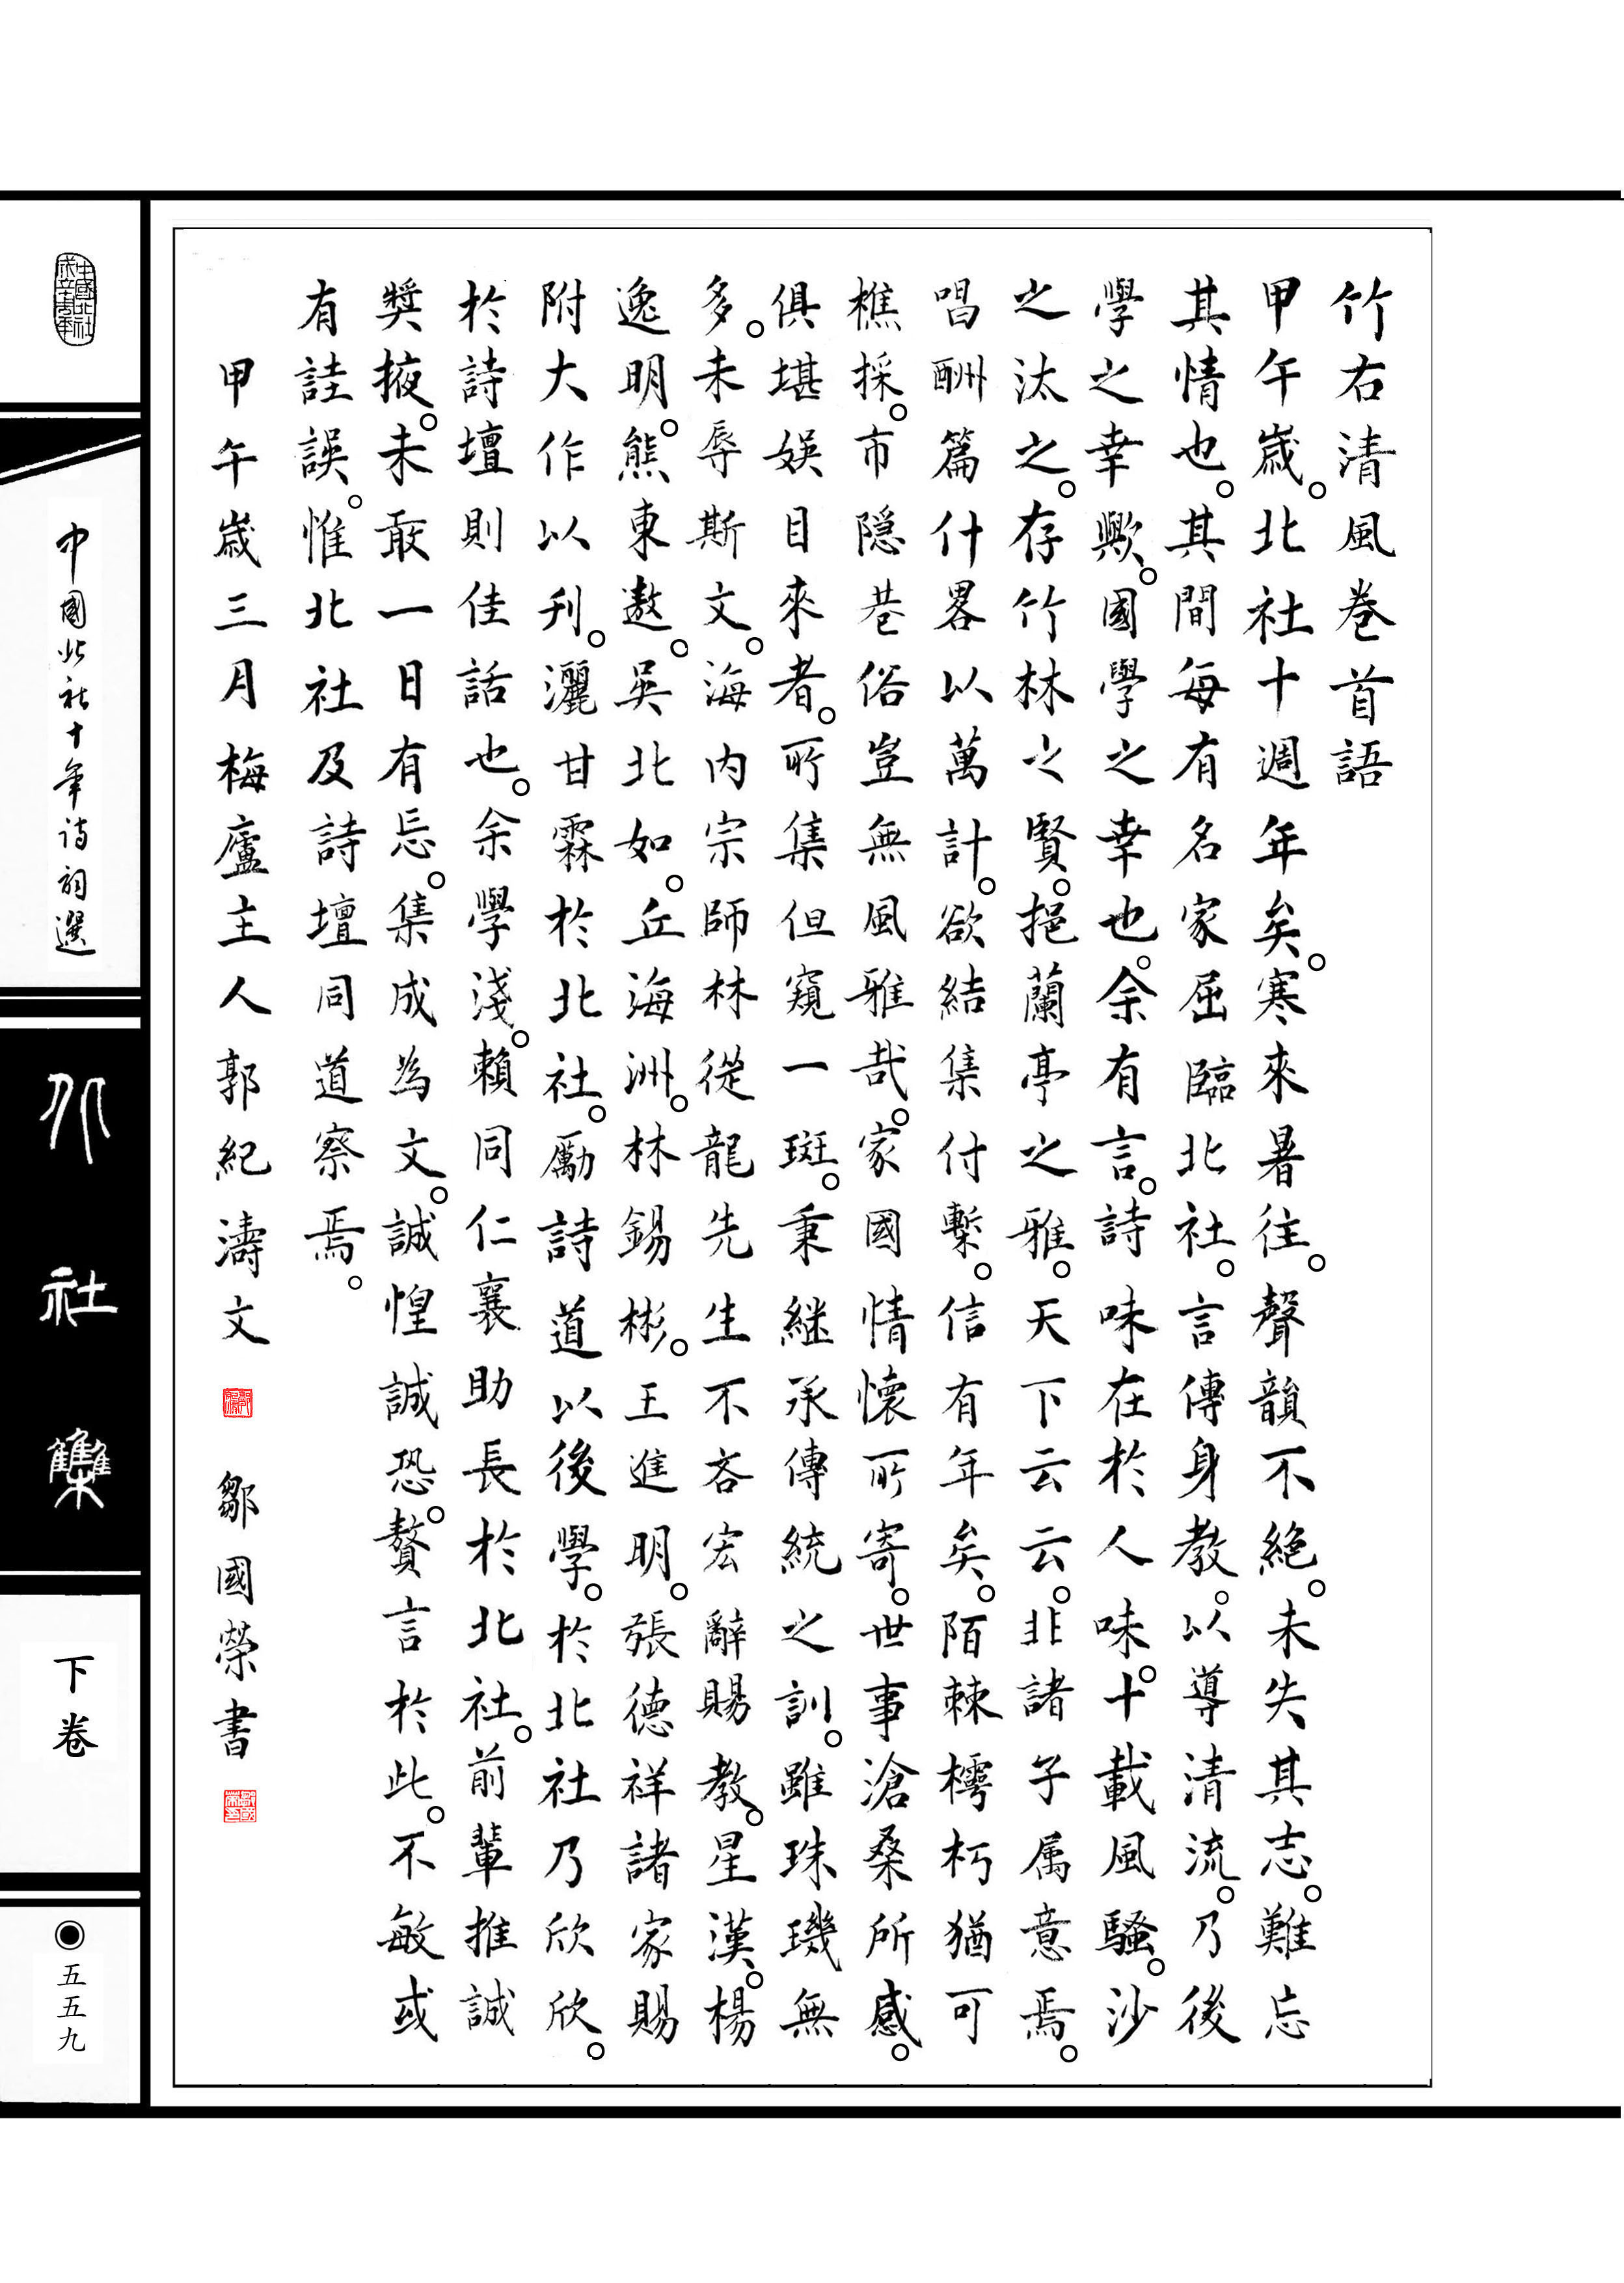 竹右清風卷首語
甲午歲。北社十週年矣。寒來暑往。聲韻不絕。未失其志。難忘
其情也。其間每有名家屈臨北社。言傳身教。以導清流。乃後
學之幸歟。國學之幸也。余有言。詩味在於人味。十載風騷。沙
之汰之。存竹林之賢。挹蘭亭之雅。天下云云。非諸子属意焉。
唱酬篇什畧以萬計。欲結集付槧。信有年矣。陌棘樗朽猶可
樵採。市隱巷俗豈無風雅哉。家國情懷所寄。世事滄桑所感。
俱堪娱目來者。所集但窺一斑。秉継承傳統之訓。雖珠璣無
多。未辱斯文。海内宗師林從龍先生不吝宏辭賜教。星漢。楊
逸明。熊東遨。吳北如。丘海洲。林錫彬。王進明。張德祥諸家賜
附大作以刋。灑甘霖於北社。勵詩道以後學。於北社乃欣欣。
於詩壇則佳話也。余學淺。賴同仁襄助長於北社。前輩推誠
奬掖。未敢一日有忘。集成為文。誠惶誠恐。贅言於此。不敏或
有詿誤。惟北社及詩壇同道察焉。
甲午歲三月梅廬主人郭紀濤文 鄒國榮書
中國北社十年詩詞選
北社集
下卷
五五九